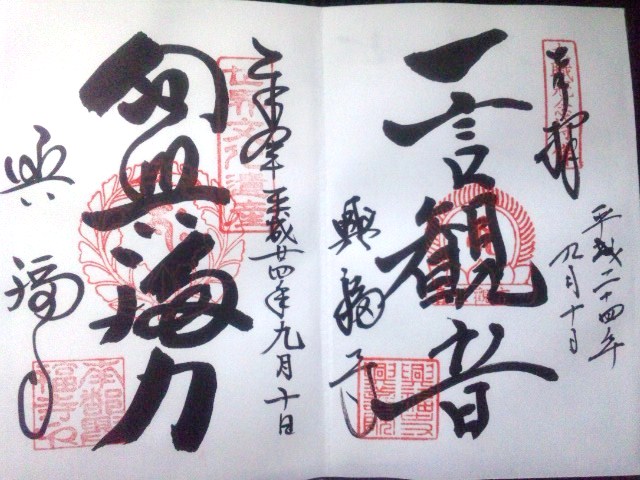 奉拝
平成二十四年
九月十日
一言観音
興福寺
平成廿四年九月十日
世界文化遺産
令興福力
興福寺